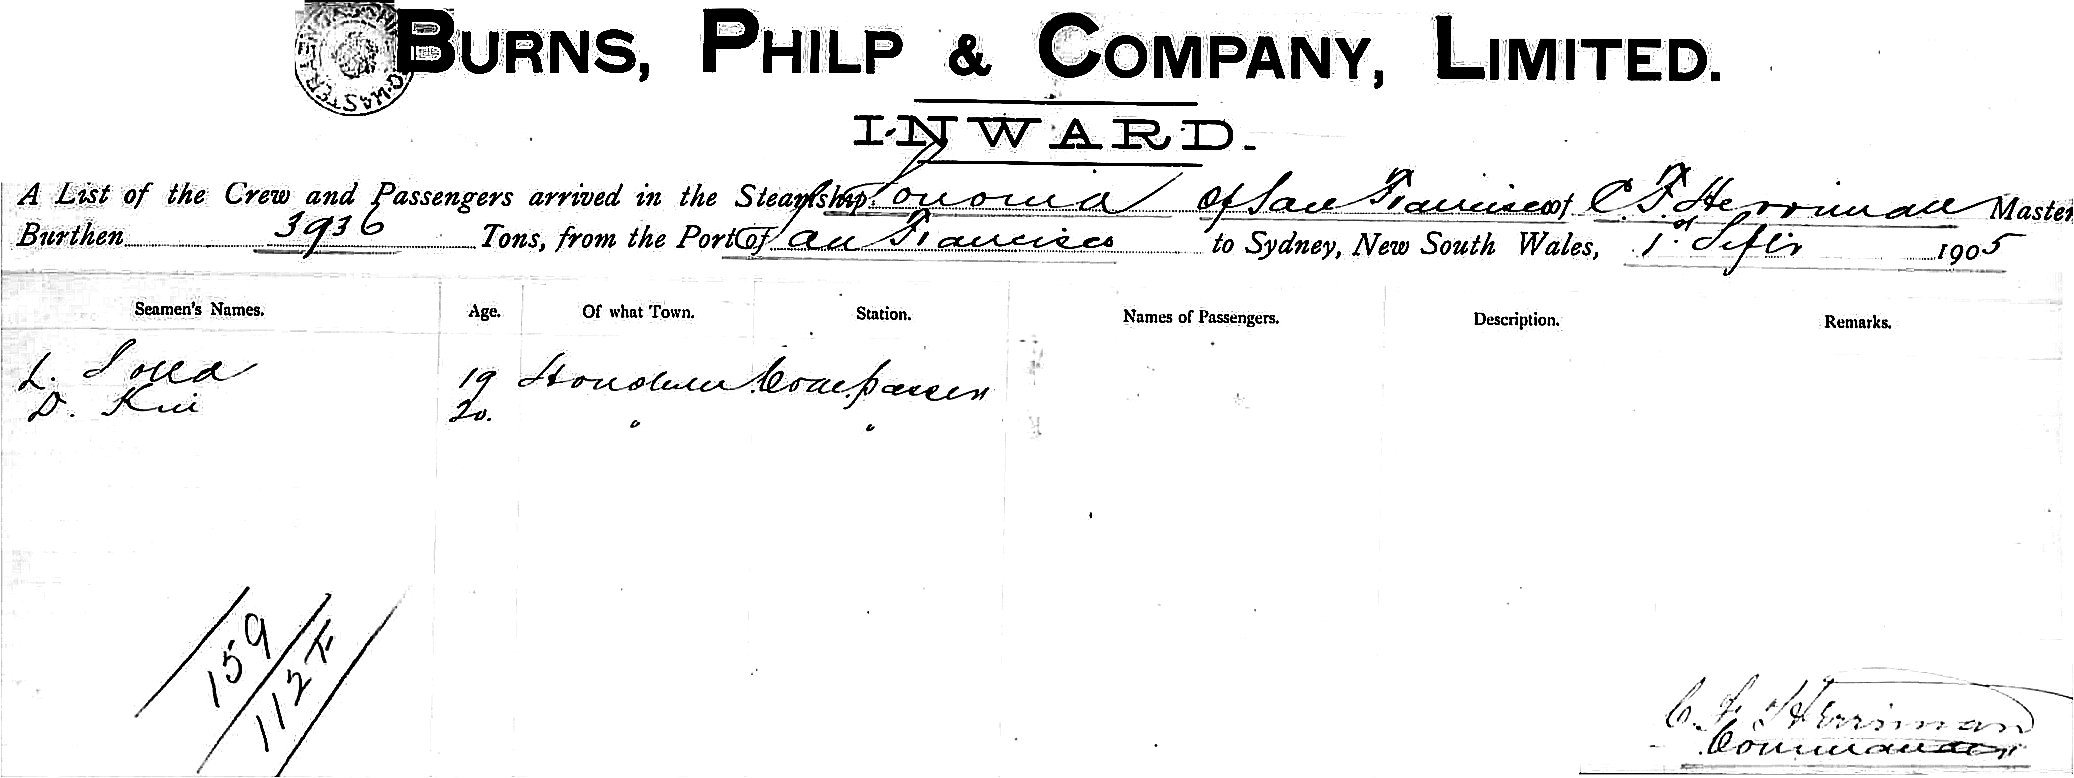 BURNS, PHILP & COMPANY, LIMITED.
INWARD.
A List of the Crew and Passengers arrived in the Steamship Sonoma of San Francisco of C. F. Herriman Master
Burthen 3936 Tons, from the Port of San Francisco to Sydney, New South Wales, 1st Septr 1905
Seamen's Names. Age. Of what Town. Station. Names of Passengers. Description. Remarks.
L. 19 Honolulu Coal passer
D. 20. " "
159
112 F
C. F. Herriman
Commander